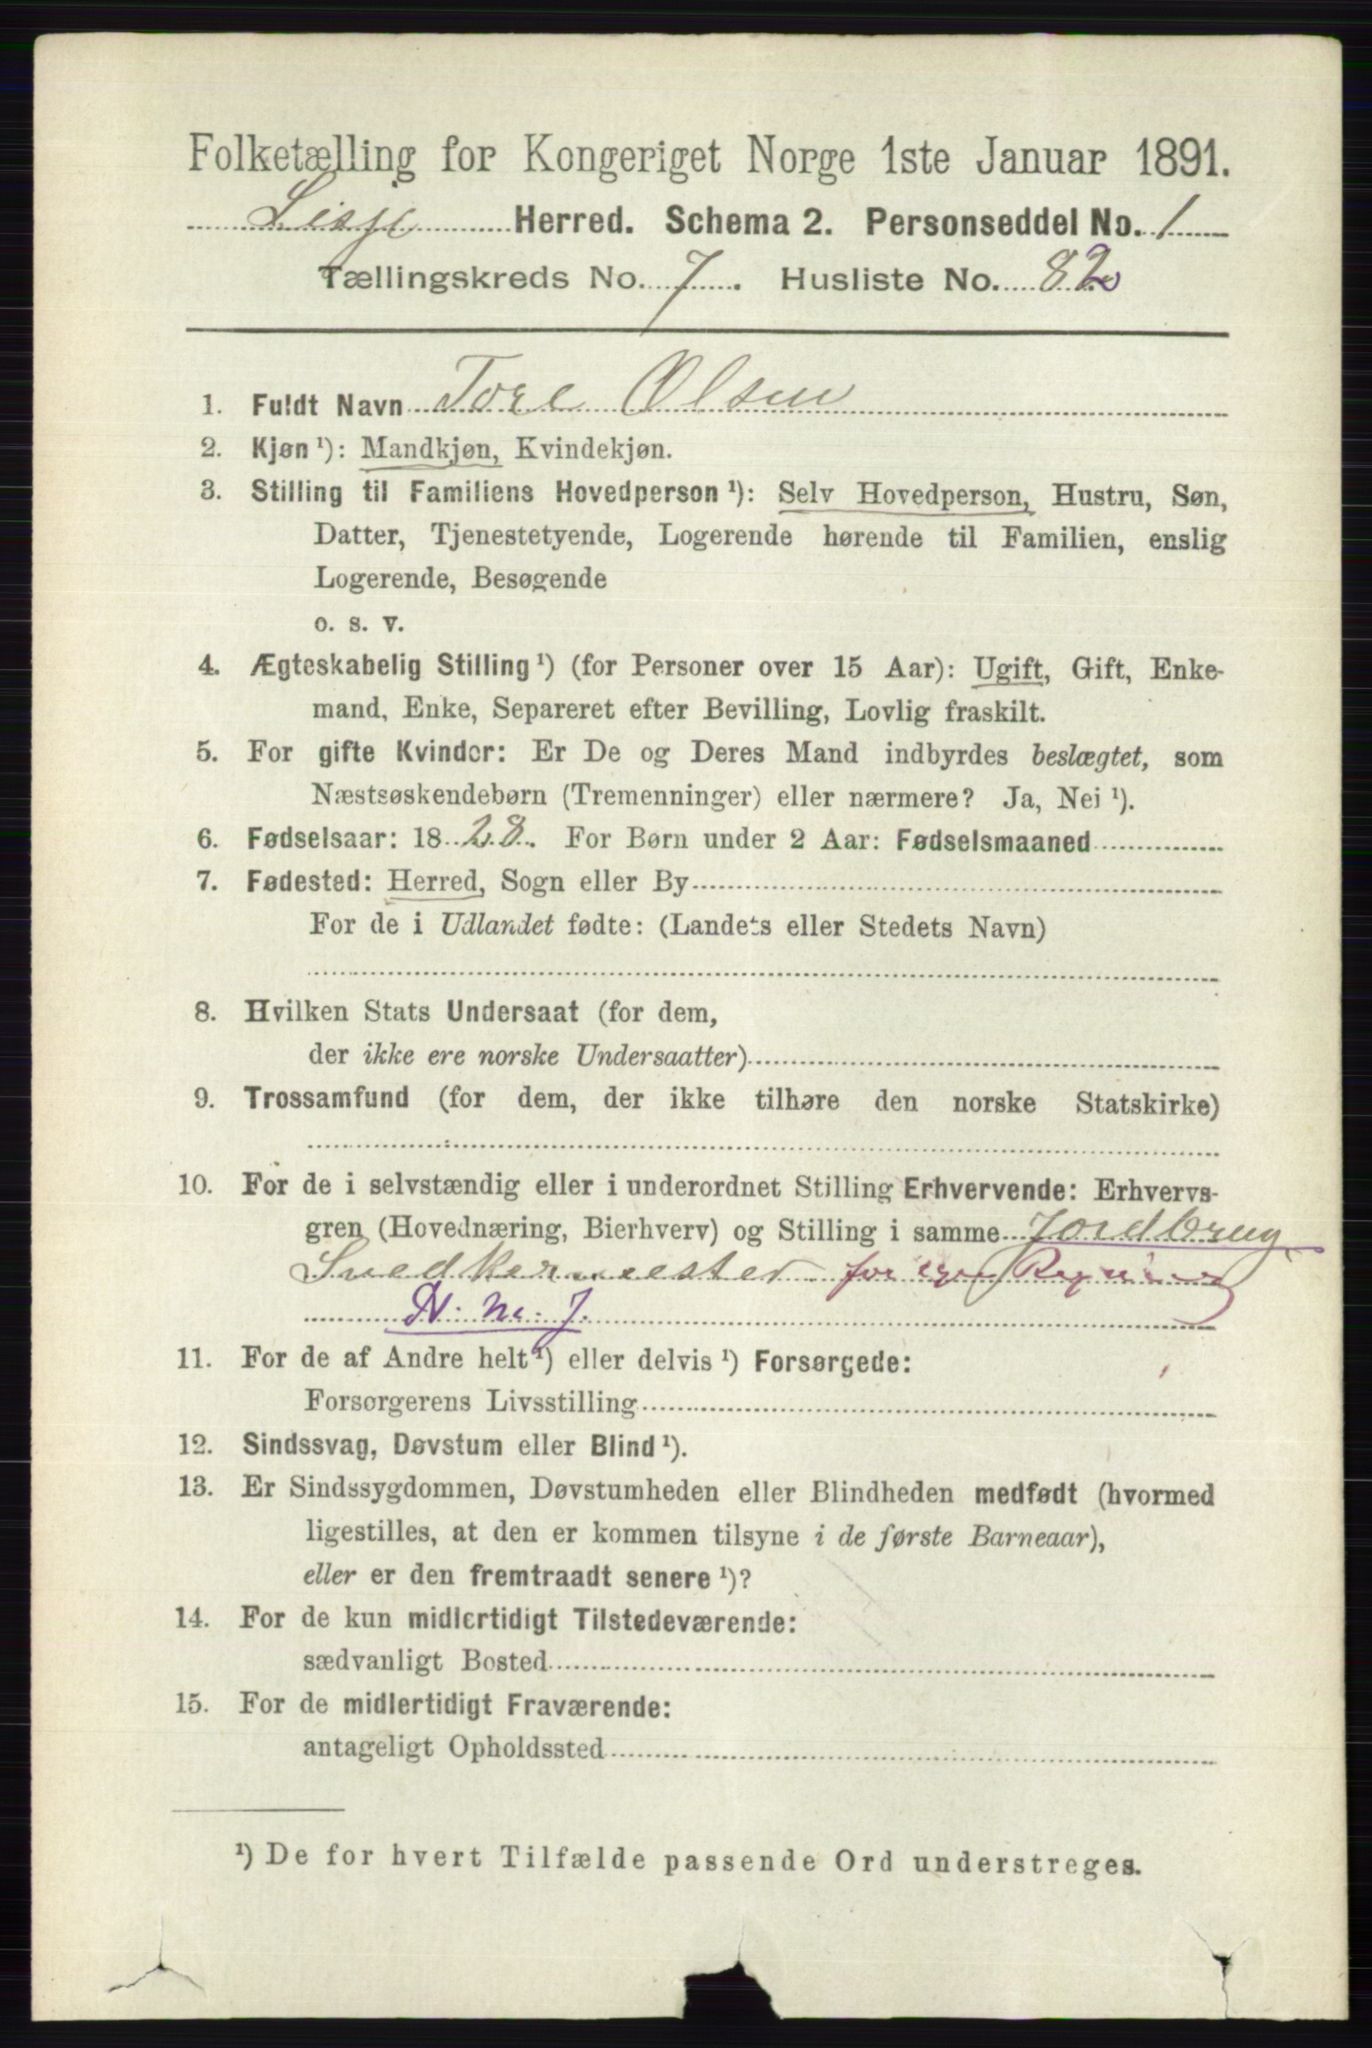 Folketælling for Kongeriget Norge 1ste Januar 1891.
Lesje Herred. Schema 2. Personseddel No. 1
Tællingskreds No. 7. Husliste No. 82
1. Fuldt Navn Tore Olsen
2. Kjøn ¹): Mandkjøn, Kvindekjøn.
3. Stilling til Familiens Hovedperson ¹): Selv Hovedperson, Hustru, Søn,
Datter, Tjenestetyende, Logerende hørende til Familien, enslig
Logerende, Besøgende
o. s. v.
4. Ægteskabelig Stilling ¹) (for Personer over 15 Aar): Ugift, Gift, Enke-
mand, Enke, Separeret efter Bevilling, Lovlig fraskilt.
5. For gifte Kvinder: Er De og Deres Mand indbyrdes beslægtet, som
Næstsøskendebørn (Tremenninger) eller nærmere? Ja, Nei ¹).
6. Fødselsaar: 1828. For Børn under 2 Aar: Fødselsmaaned
7. Fødested: Herred, Sogn eller By
For de i Udlandet fødte: (Landets eller Stedets Navn)
8. Hvilken Stats Undersaat (for dem,
der ikke ere norske Undersaatter)
9. Trossamfund (for dem, der ikke tilhøre den norske Statskirke)
10. For de i selvstændig eller i underordnet Stilling Erhvervende: Erhvervs-
gren (Hovednæring, Bierhverv) og Stilling i samme Jordbrug
Snedkermester for egen Regning
N. No. 7.
11. For de af Andre helt ¹) eller delvis ¹) Forsørgede:
Forsørgerens Livsstilling
12. Sindssvag, Døvstum eller Blind ¹).
13. Er Sindssygdommen, Døvstumheden eller Blindheden medfødt (hvormed
ligestilles, at den er kommen tilsyne i de første Barneaar),
eller er den fremtraadt senere ¹)?
14. For de kun midlertidigt Tilstedeværende:
sædvanligt Bosted
15. For de midlertidigt Fraværende:
antageligt Opholdssted
¹) De for hvert Tilfælde passende Ord understreges.